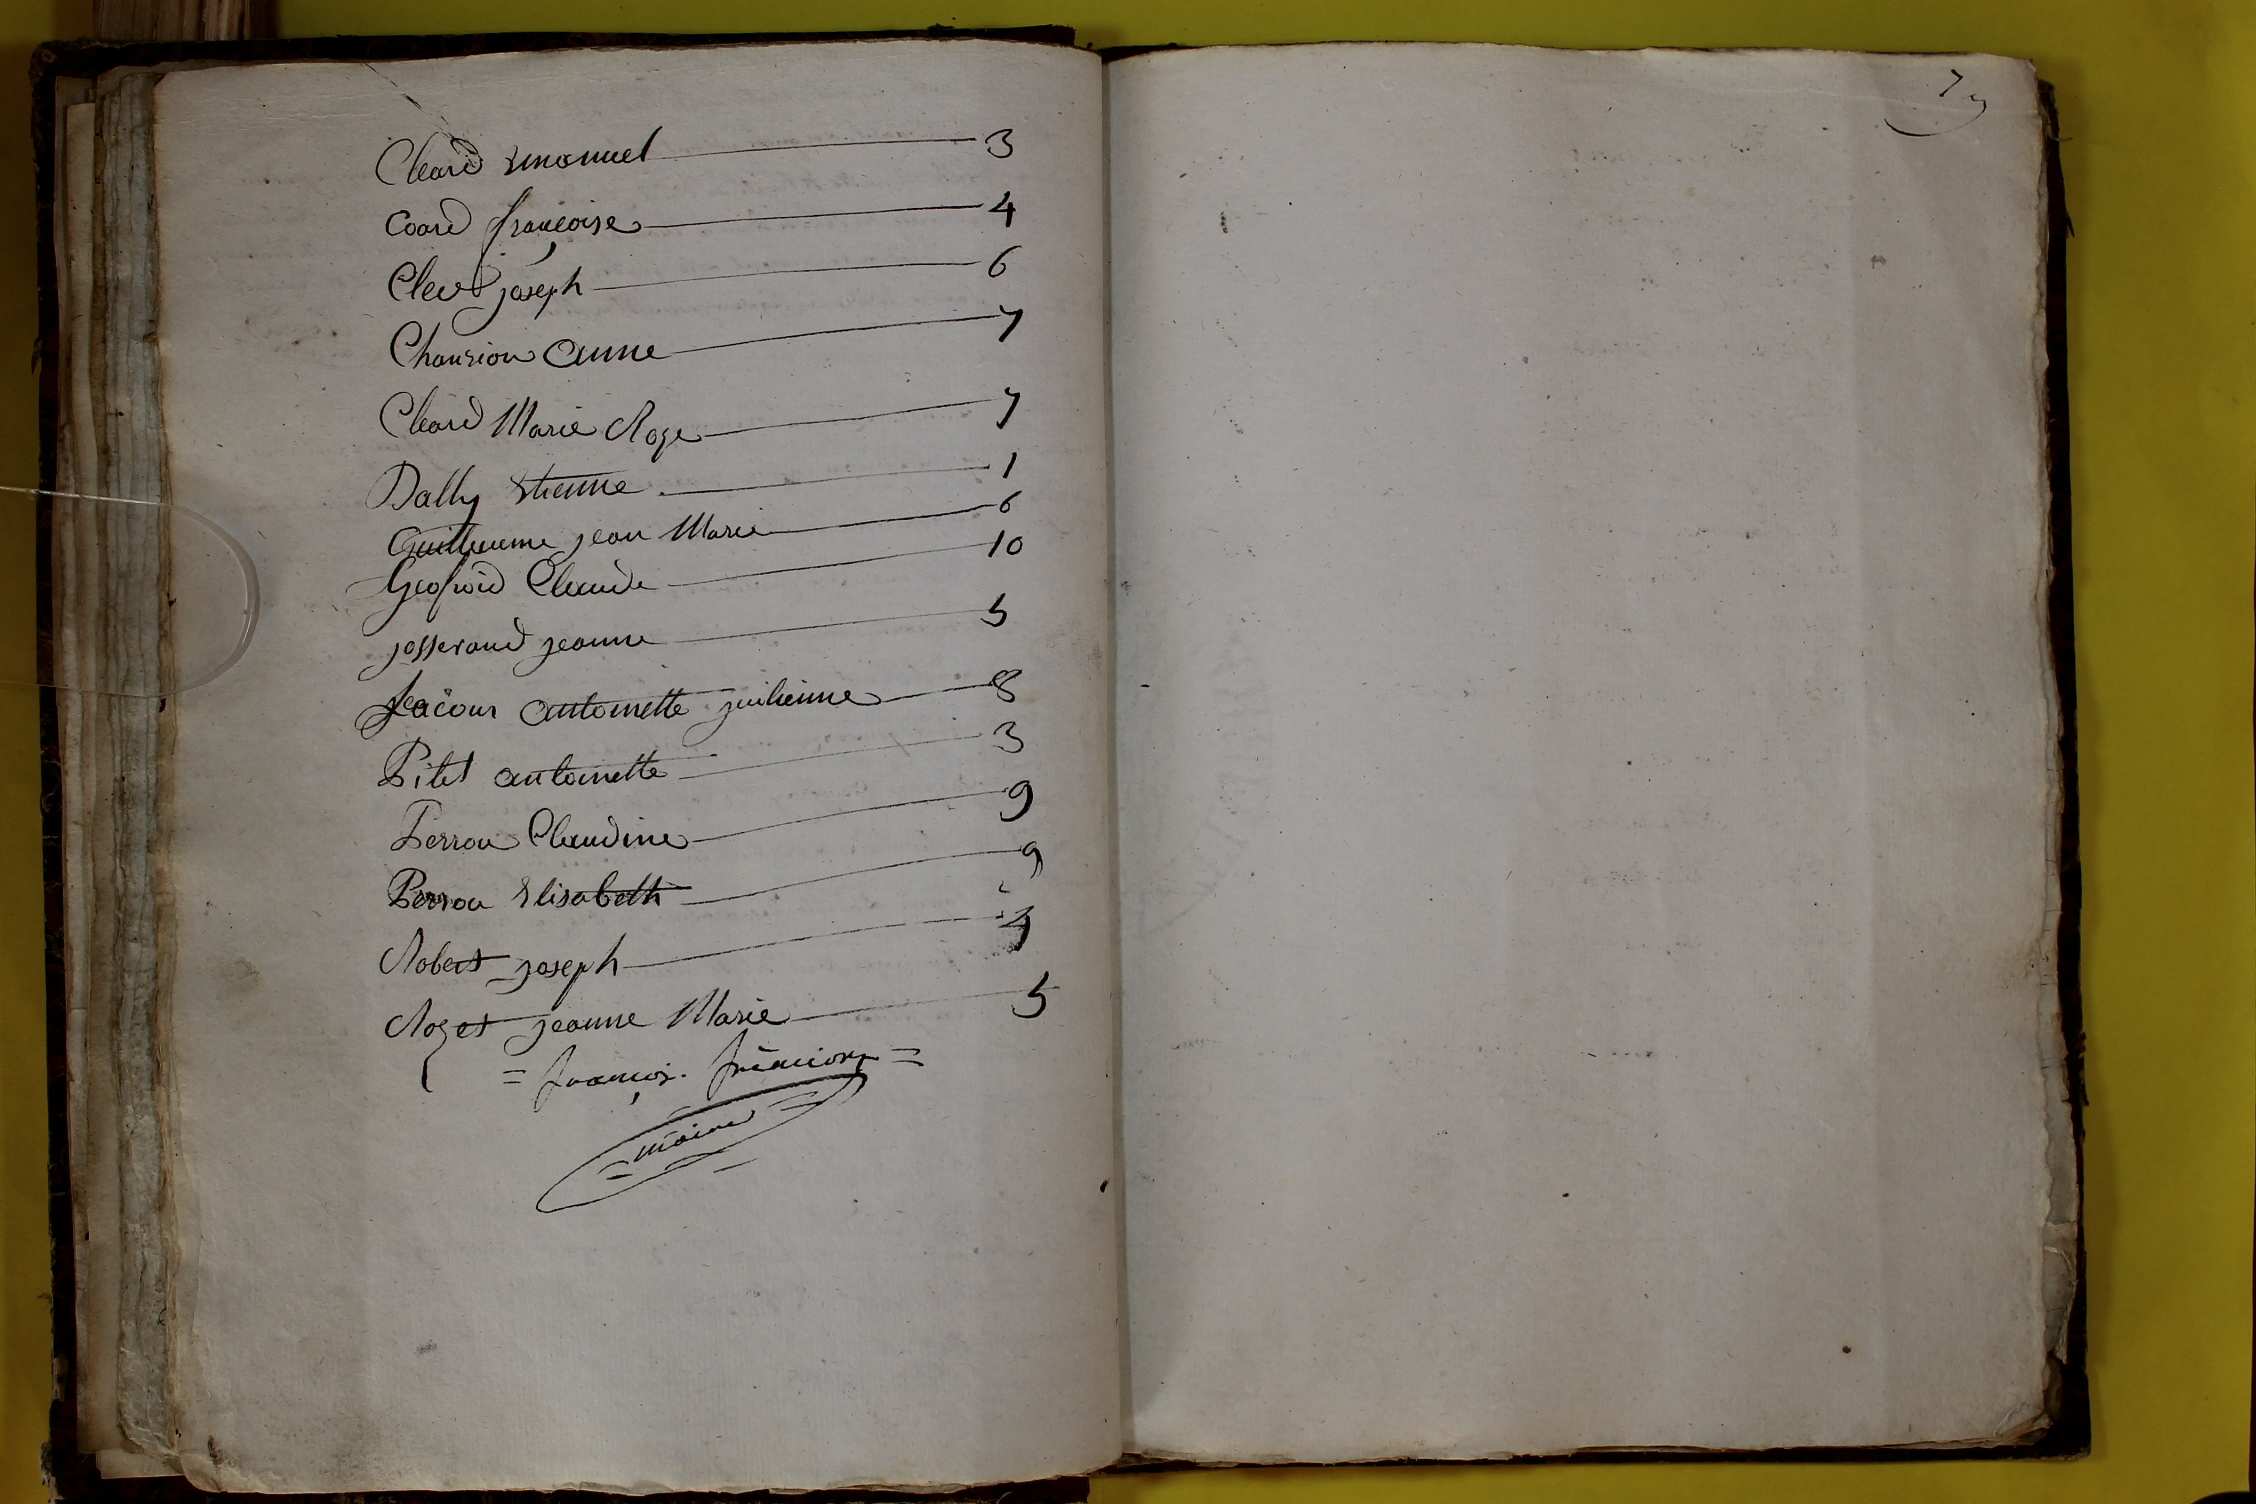 Cleard emanuel 3
Coard françoise 4
Clerd joseph 6
Chansion anne 7
Cleard Marie Roze 7
Dally Etienne 1
Guillaume jean Marie 6
Geofroid Claude 10
josserand jeanne 5
Lacour antoinette juilienne 8
Pitet antoinette 3
Perrou Claudine 9
Perrou Elisabeth 9
Robert joseph 4
Rozet jeanne Marie 5
= françois =
maire
7